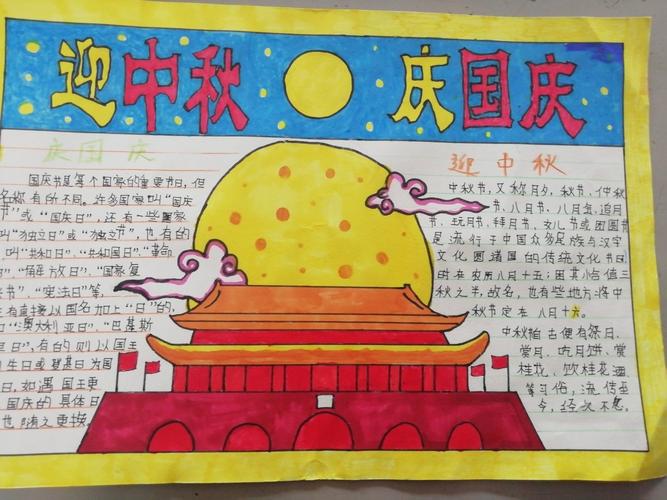 迎中秋 庆国庆
庆国庆
国庆节是每个国家的重要节日，但
名称有的不同。许多国家叫“国庆
节”或“国庆日”，还有一些国家
叫“独立日”或“独立节”，也有的
叫“共和日”、“共和国日”、“革命
”、“解放日”、“国家复
节”、“宪法日”等，
有直接以国名加上“日”的，
“澳大利亚日”、“巴基斯
日”，有的则以国王
生日或登基日为国
日，如遇国王更
国庆的具体日
也随之更换。
迎中秋
中秋节，又称月夕、秋节、仲秋
节、八月节、八月会、追月
节、玩月节、拜月节、女儿节或团圆节
是流行于中国众多民族与汉字
文化圈诸国的传统文化节日
时在农历八月十五；因其恰值三
秋之半，故名，也有些地方将中
秋节定在八月十六。
中秋节自古便有祭月、
赏月、吃月饼、赏
桂花、饮桂花酒
等习俗，流传至
今，经久不息。